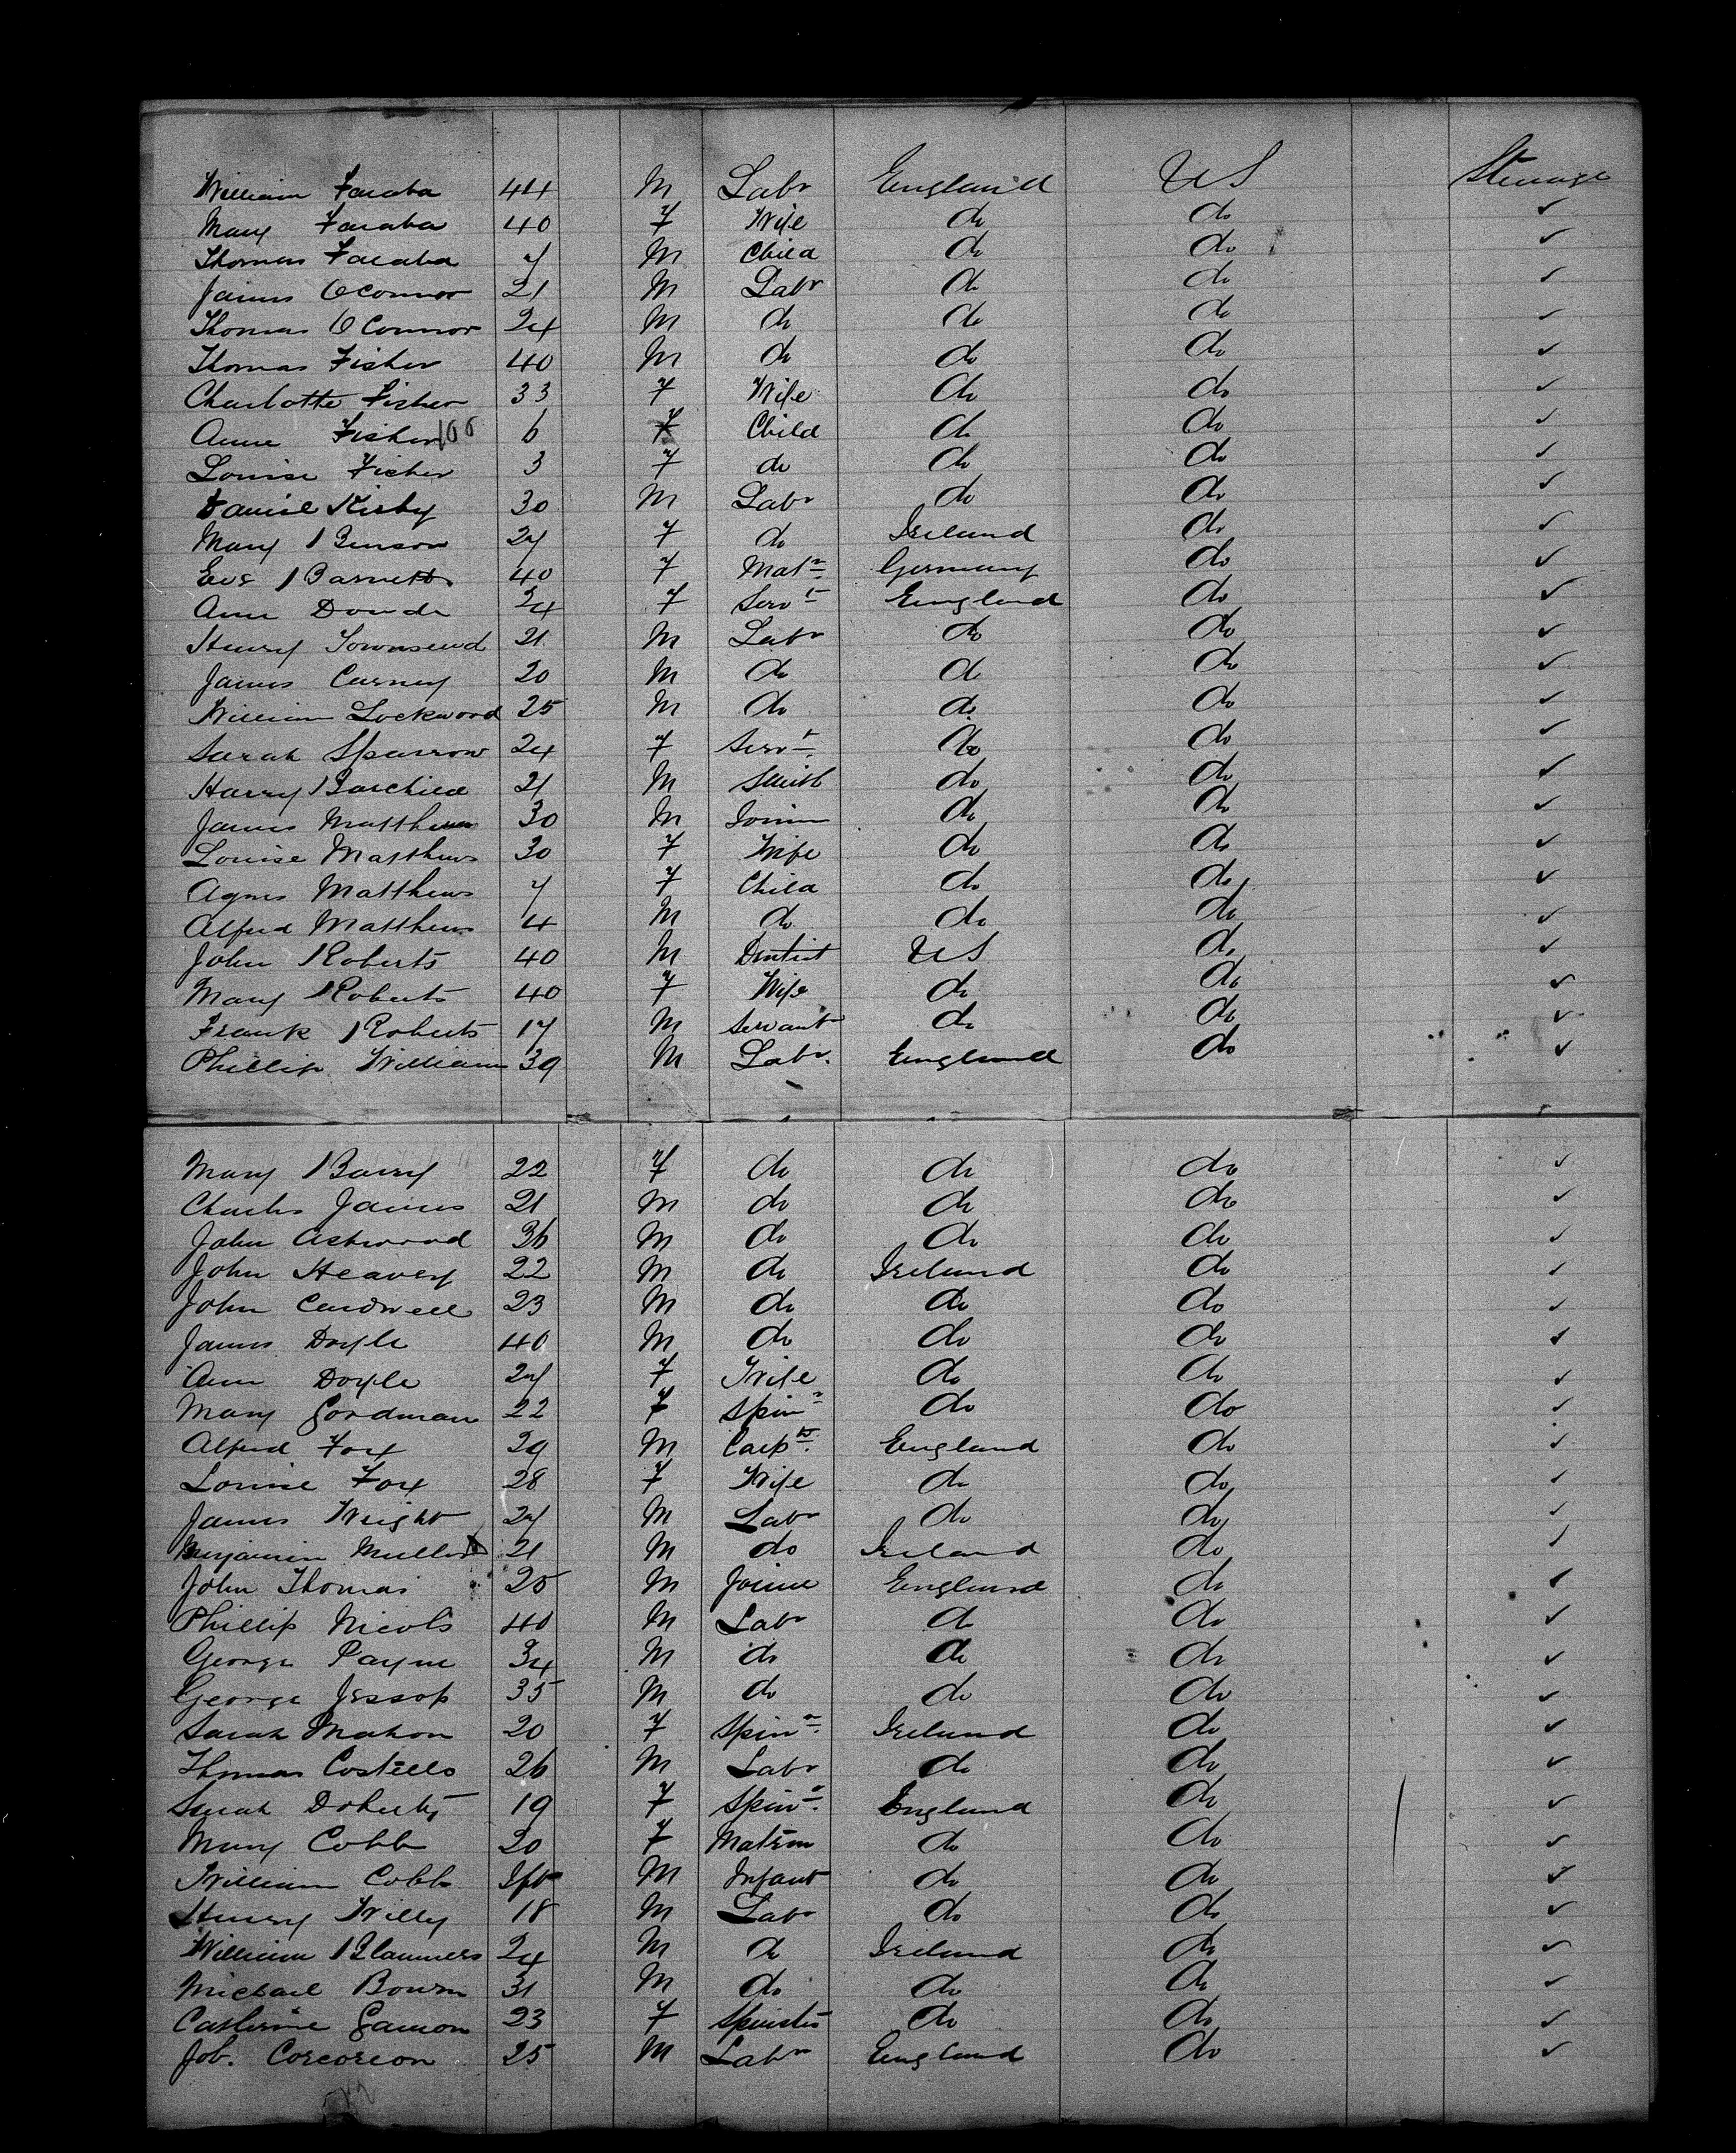 William Faraba 44 M Labr England US Steerage
Mary Faraba 40 F Wife do do ✓
Thomas Faraba 7 M Child do do ✓
James OConnor 21 M Labr do do ✓
Thomas OConnor 24 M do do do ✓
Thomas Fisher 40 M do do do ✓
Charlotte Fisher 33 F Wife do do ✓
Anne Fisher 6 F Child do do ✓
Louisa Fisher 3 F do do do ✓
Daniel Kirby 30 M Labr do do ✓
Mary Benson 27 F do Ireland do ✓
Eve Barnett 40 F Matn Germany do ✓
Ann 24 F Servt England do ✓
Henry Townsend 21 M Labr do do ✓
James Carney 20 M do do do ✓
William Lockwood 25 M do do do ✓
Sarah Sparrow 24 F Servt do do ✓
Harry 21 M Smith do do ✓
James Matthews 30 M Joiner do do ✓
Louise Matthews 30 F Wife do do ✓
Agnes Matthews 7 F Child do do ✓
Alfred Matthews 4 M do do do ✓
John Roberts 40 M Dentist US do ✓
Mary Roberts 40 F Wife do do ✓
Frank Roberts 17 M Servant do do ✓
Phillip William 39 M Labr. England do ✓
Mary Barry 22 F do do do ✓
Charles James 21 M do do do ✓
John Ashwood 36 M do do do ✓
John Heavey 22 M do Ireland do ✓
John Cardwell 23 M do do do ✓
James Doyle 40 M do do do ✓
Ann Doyle 27 F Wife do do ✓
Mary Goodman 22 F Spinr do do ✓
Alfred Fox 29 M Carptr England do ✓
Louise Fox 28 F Wife do do ✓
James Wright 27 M Labr do do ✓
Benjamin 21 M do Ireland do ✓
John Thomas 25 M Joiner England do ✓
Phillip Nicols 40 M Labr do do ✓
George Payne 34 M do do do ✓
George Jessop 35 M do do do ✓
Sarah Mahon 20 F Spinr Ireland do ✓
Thomas Costello 26 M Labr do do ✓
Sarah Doherty 19 F Spinr England do ✓
Mary Cobb 20 F Matron do do ✓
William Cobb Inft M Infant do do ✓
Henry Willy 18 M Labr do do ✓
William 24 M do Ireland do ✓
Michael Bowen 31 M do do do ✓
Catherine Gamon 23 F Spinster do do ✓
Job. Corcoreon 25 M Labr England do ✓